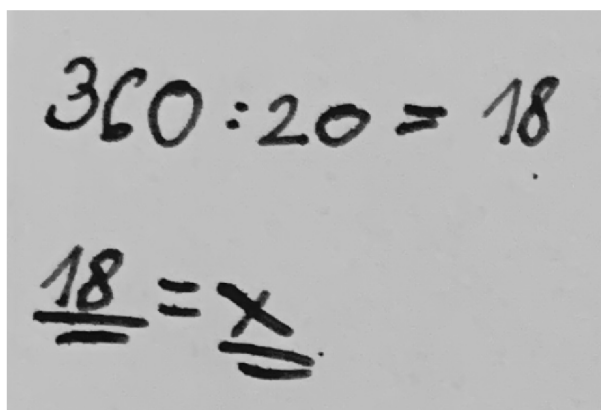 360 : 20 = 18
18 = x